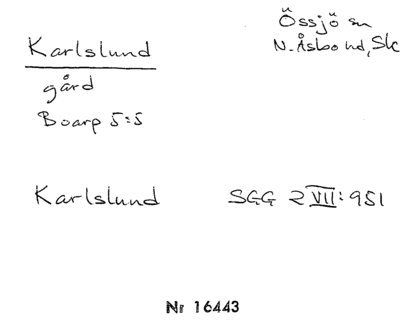 Karlslund
Össjö sn
N. Åsbo hd, Sk
gård
Boarp 5:5
Karlslund
SGG 2 VII: 951
Nr 16443